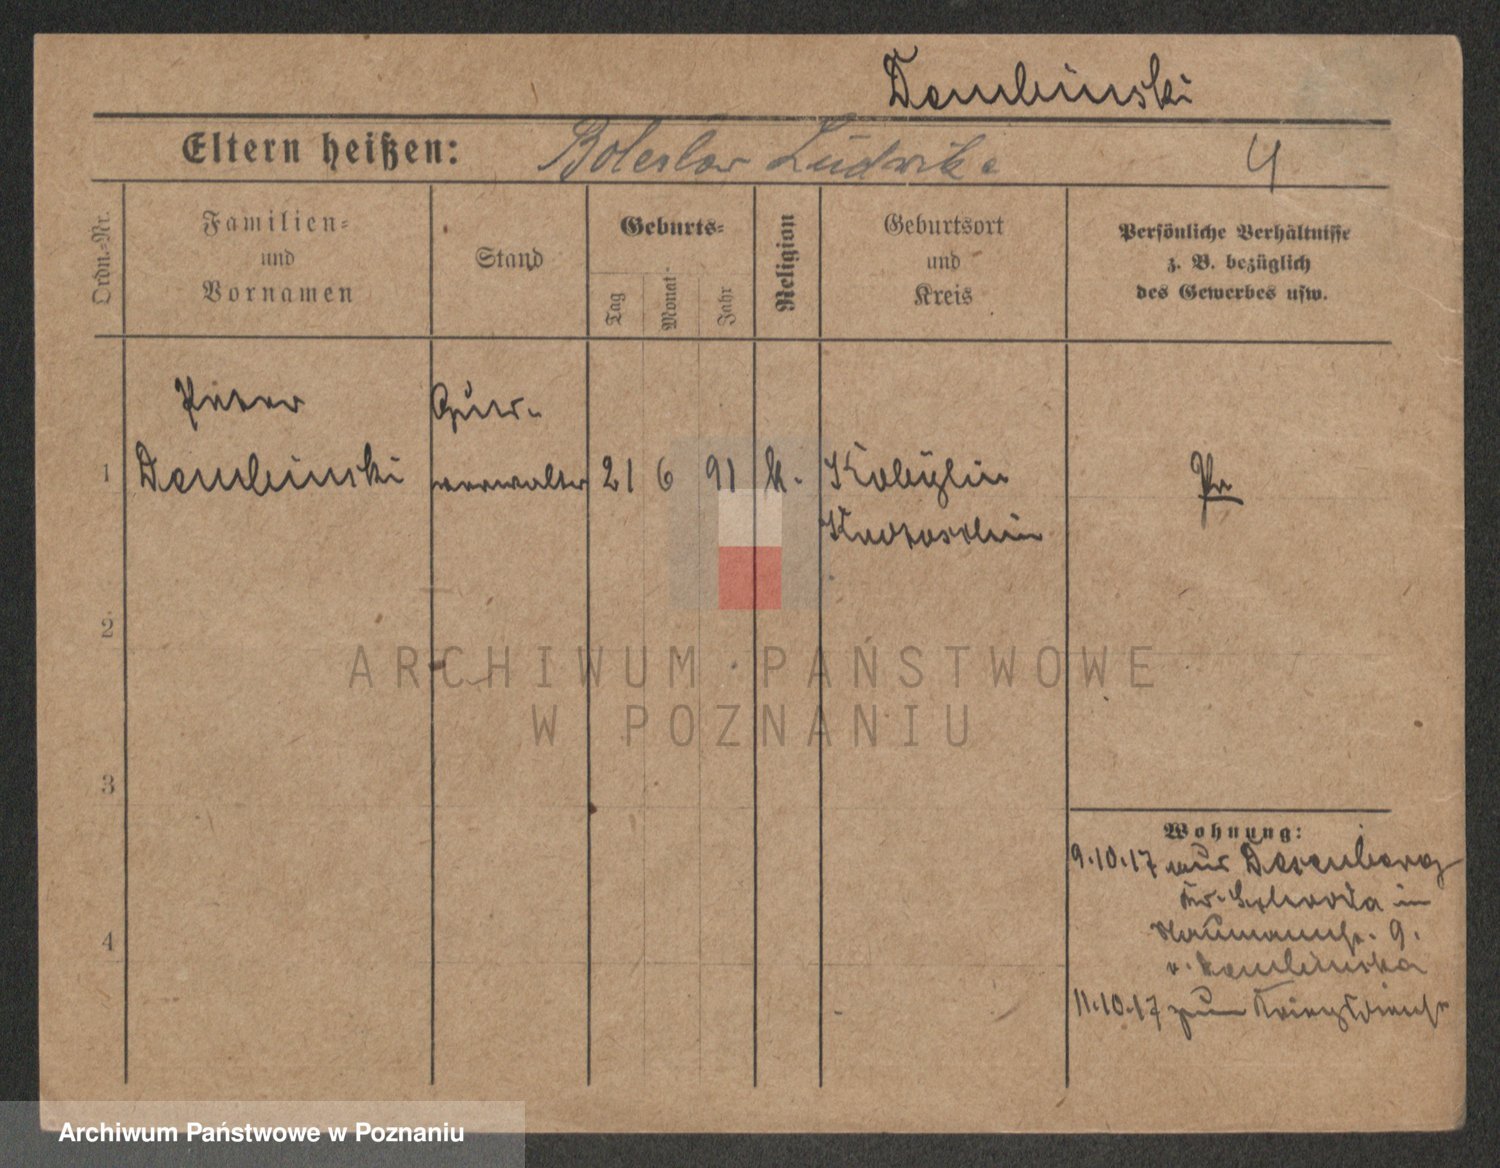 Dembinski
Eltern heißen: Boleslaw Ludwika 4
Ordn.-Nr.
Familien-
und
Vornamen
Stand
Geburts-
Tag
Monat
Jahr
Religion
Geburtsort
und
Kreis
Persönliche Verhältnisse
z. B. bezüglich
des Gewerbes usw.
Peter Guts-
1 Dembinski verwalter 21 6 91 k. Kobylin Pr
Krotoschin
2
3
4
Wohnung:
9.10.17 aus
Kr. Schroda in
Naumannstr. 9.
v. Dembinska
11.10.17 zum Kriegsdienst
ARCHIWUM PAŃSTWOWE
W POZNANIU
Archiwum Państwowe w Poznaniu